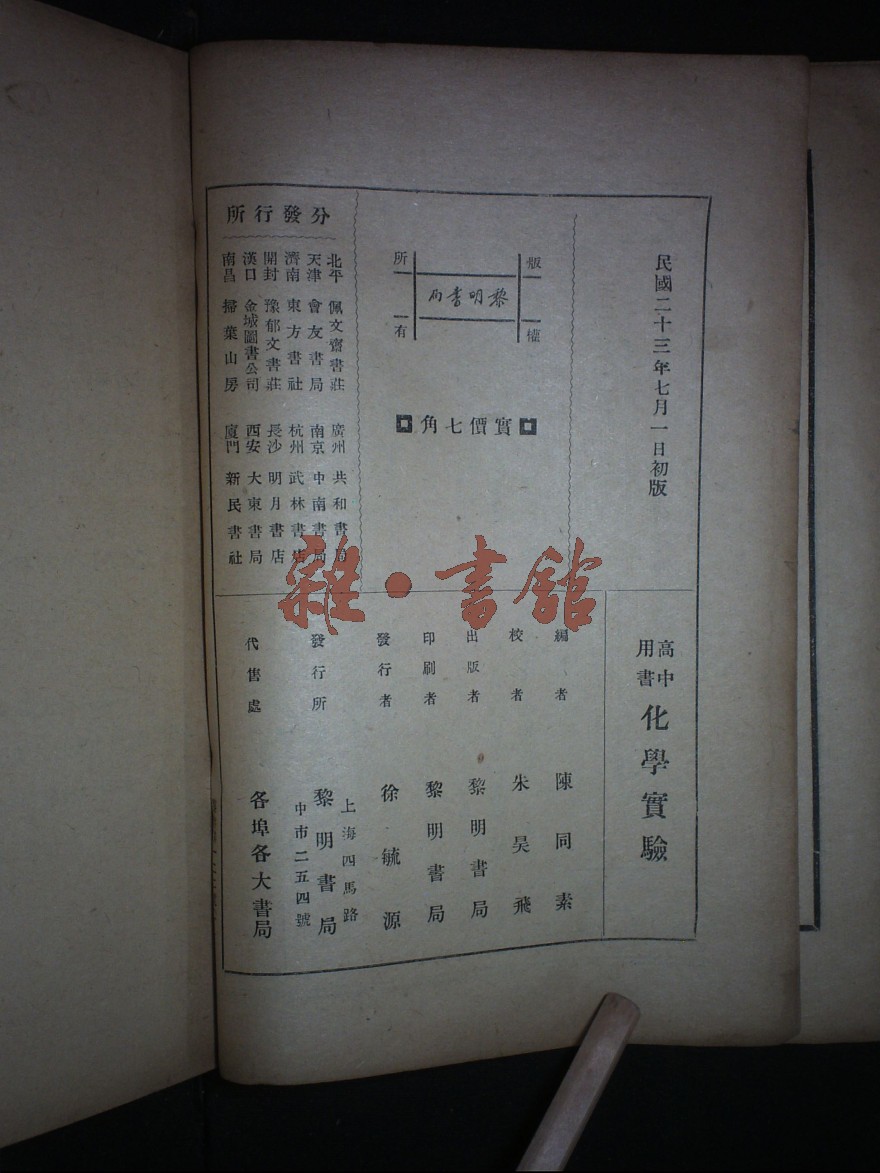 民國二十三年七月一日初版
高中用書
化學實驗
版權所有
黎明書局
實價七角
編者 陳同素
校者 朱昊飛
出版者 黎明書局
印刷者 黎明書局
發行者 徐毓源
發行所 上海四馬路
黎明書局
中市二五四號
代售處 各埠各大書局
分發行所
北平 佩文齋書莊
天津 會友書局
濟南 東方書社
開封 豫郁文書莊
漢口 金城圖書公司
南昌 掃葉山房
廣州 共和書局
南京 中南書局
杭州 武林書店
長沙 明月書店
西安 大東書局
廈門 新民書社
雜·書館